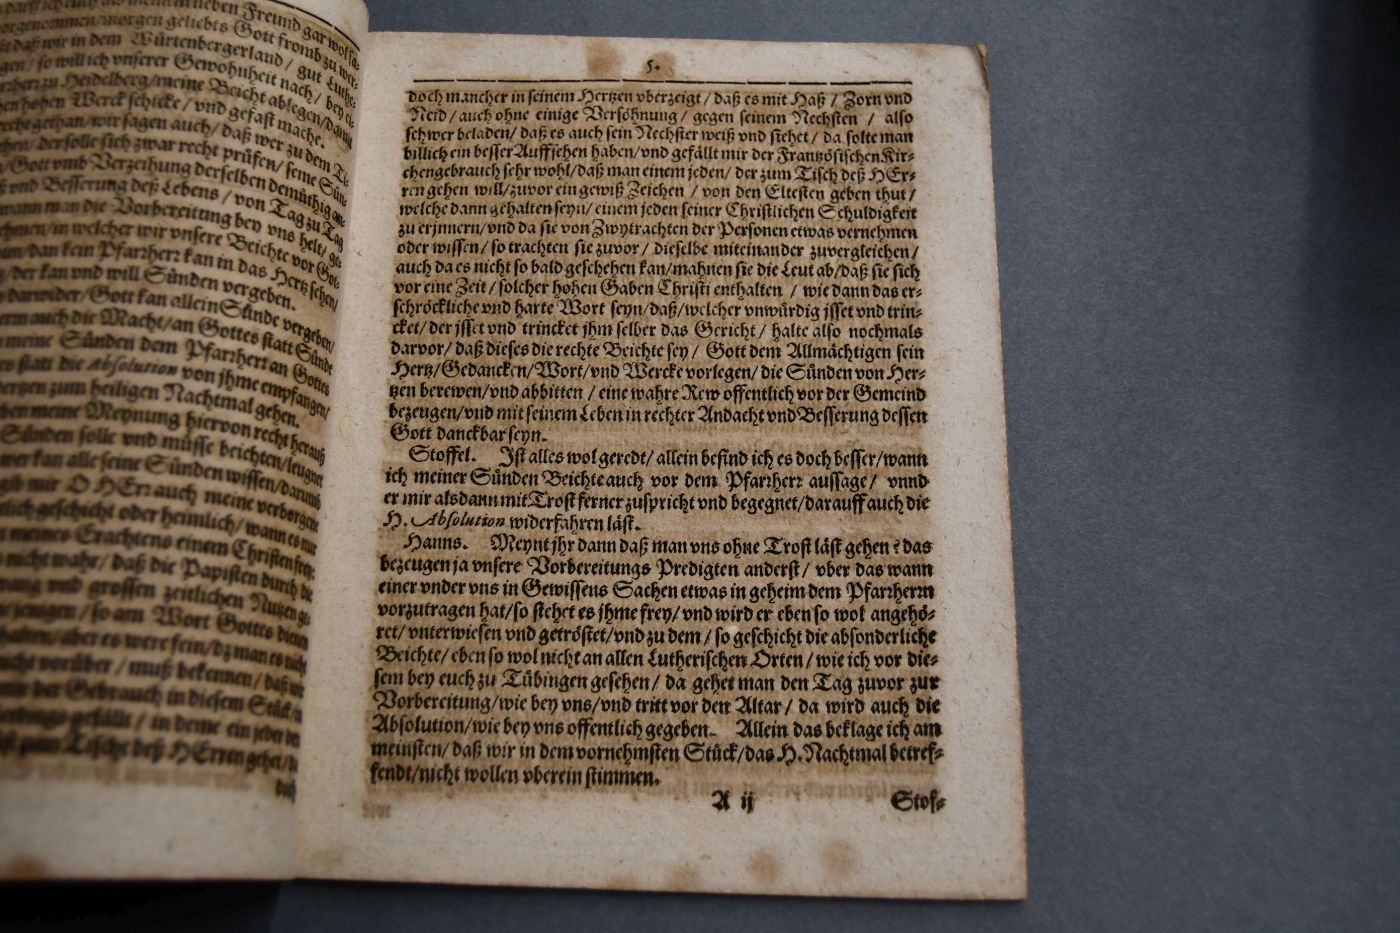 darff ich euch als meinem lieben Freund gar wol sa-
vorgenommen/morgen geliebts Gott fromb zu wer-
daß wir in dem Würtenbergerland / gut Luthe-
gen / so will ich vnserer Gewohnheit nach / bey ei-
zu Heidelberg / meine Beicht ablegen / damit
hohen Werck schicke / vnd gefast mache.
recht gethan / wir sagen auch / daß wer zu dem Ti-
der solle sich zwar recht prüfen / seine Sün-
Gott vmb Verzeihung derselben demüthig an-
vnd Besserung deß Lebens / von Tag zu Tag
wann man die Vorbereitung bey vns helt / ge-
in welcher wir vnsere Beichte vor Got-
dan kein Pfarrherr kan in das Hertz sehen /
der kan vnd will Sünden vergeben.
darwider / Gott kan allein Sünde vergeben /
auch die Macht / an Gottes statt Sünde
meine Sünden dem Pfarrherr an Gottes
statt die Absolution von jhme empfangen /
zum heiligen Nachtmal gehen.
meine Meynung hiervon recht herauß
Sünden solle vnd müsse beichten / leugnet
wer kan alle seine Sünden wissen / darumb
mir O HErr auch meine verborgene
geschicht oder heimlich / wann es nur
meines Erachtens einem Christen frey:
nicht wahr / daß die Papisten durch die
vnd grossen zeitlichen Nutzen ge-
jenigen / so am Wort Gottes dienen
aber es were fein / dz man es nicht
vorüber / muß bekennen / daß
der Gebrauch in diesem Stück
gefällt / in deme ein jeder der
zum Tische deß HErren gehet /
doch
5.
doch mancher in seinem Hertzen vberzeigt / daß es mit Haß / Zorn vnd
Neid / auch ohne einige Versöhnung / gegen seinem Nechsten / also
schwer beladen / daß es auch sein Nechster weiß vnd siehet / da solte man
billich ein besser Auffsehen haben / vnd gefällt mir der Frantzösischen Kir-
chengebrauch sehr wohl / daß man einem jeden / der zum Tisch deß HEr-
ren gehen will / zuvor ein gewiß Zeichen / von den Eltesten geben thut /
welche dann gehalten seyn / einem jeden seiner Christlichen Schuldigkeit
zu erjnnern / vnd da sie von Zwytrachten der Personen etwas vernehmen
oder wissen / so trachten sie zuvor / dieselbe miteinander zuvergleichen /
auch da es nicht so bald geschehen kan / mahnen sie die Leut ab / daß sie sich
vor eine Zeit / solcher hohen Gaben Christi enthalten / wie dann das er-
schröckliche vnd harte Wort seyn / daß / welcher vnwürdig jsset vnd trin-
cket / der jsset vnd trincket jhm selber das Gericht / halte also nochmals
darvor / daß dieses die rechte Beichte sey / Gott dem Allmächtigen sein
Hertz / Gedancken / Wort / vnd Wercke vorlegen / die Sünden von Her-
tzen berewen / vnd abbitten / eine wahre Rew offentlich vor der Gemeind
bezeugen / vnd mit seinem Leben in rechter Andacht vnd Besserung dessen
Gott danckbar seyn.
Stoffel. Ist alles wol geredt / allein befind ich es doch besser / wann
ich meiner Sünden Beichte auch vor dem Pfarrherr aussage / vnnd
er mir alsdann mit Trost ferner zuspricht vnd begegnet / darauff auch die
H. Absolution widerfahren läst.
Hanns. Meynt jhr dann daß man vns ohne Trost läst gehen? das
bezeugen ja vnsere Vorbereitungs Predigten anderst / vber das wann
einer vnder vns in Gewissens Sachen etwas in geheim dem Pfarrherrn
vorzutragen hat / so stehet es jhme frey / vnd wird er eben so wol angehö-
ret / vnterwiesen vnd getröstet / vnd zu dem / so geschicht die absonderliche
Beichte / eben so wol nicht an allen Lutherischen Orten / wie ich vor die-
sem bey euch zu Tübingen gesehen / da gehet man den Tag zuvor zur
Vorbereitung / wie bey vns / vnd tritt vor den Altar / da wird auch die
Absolution / wie bey vns offentlich gegeben. Allein das beklage ich am
meinsten / daß wir in dem vornehmsten Stück / das H. Nachtmal betref-
fendt / nicht wollen vberein stimmen.
A ij Stof-